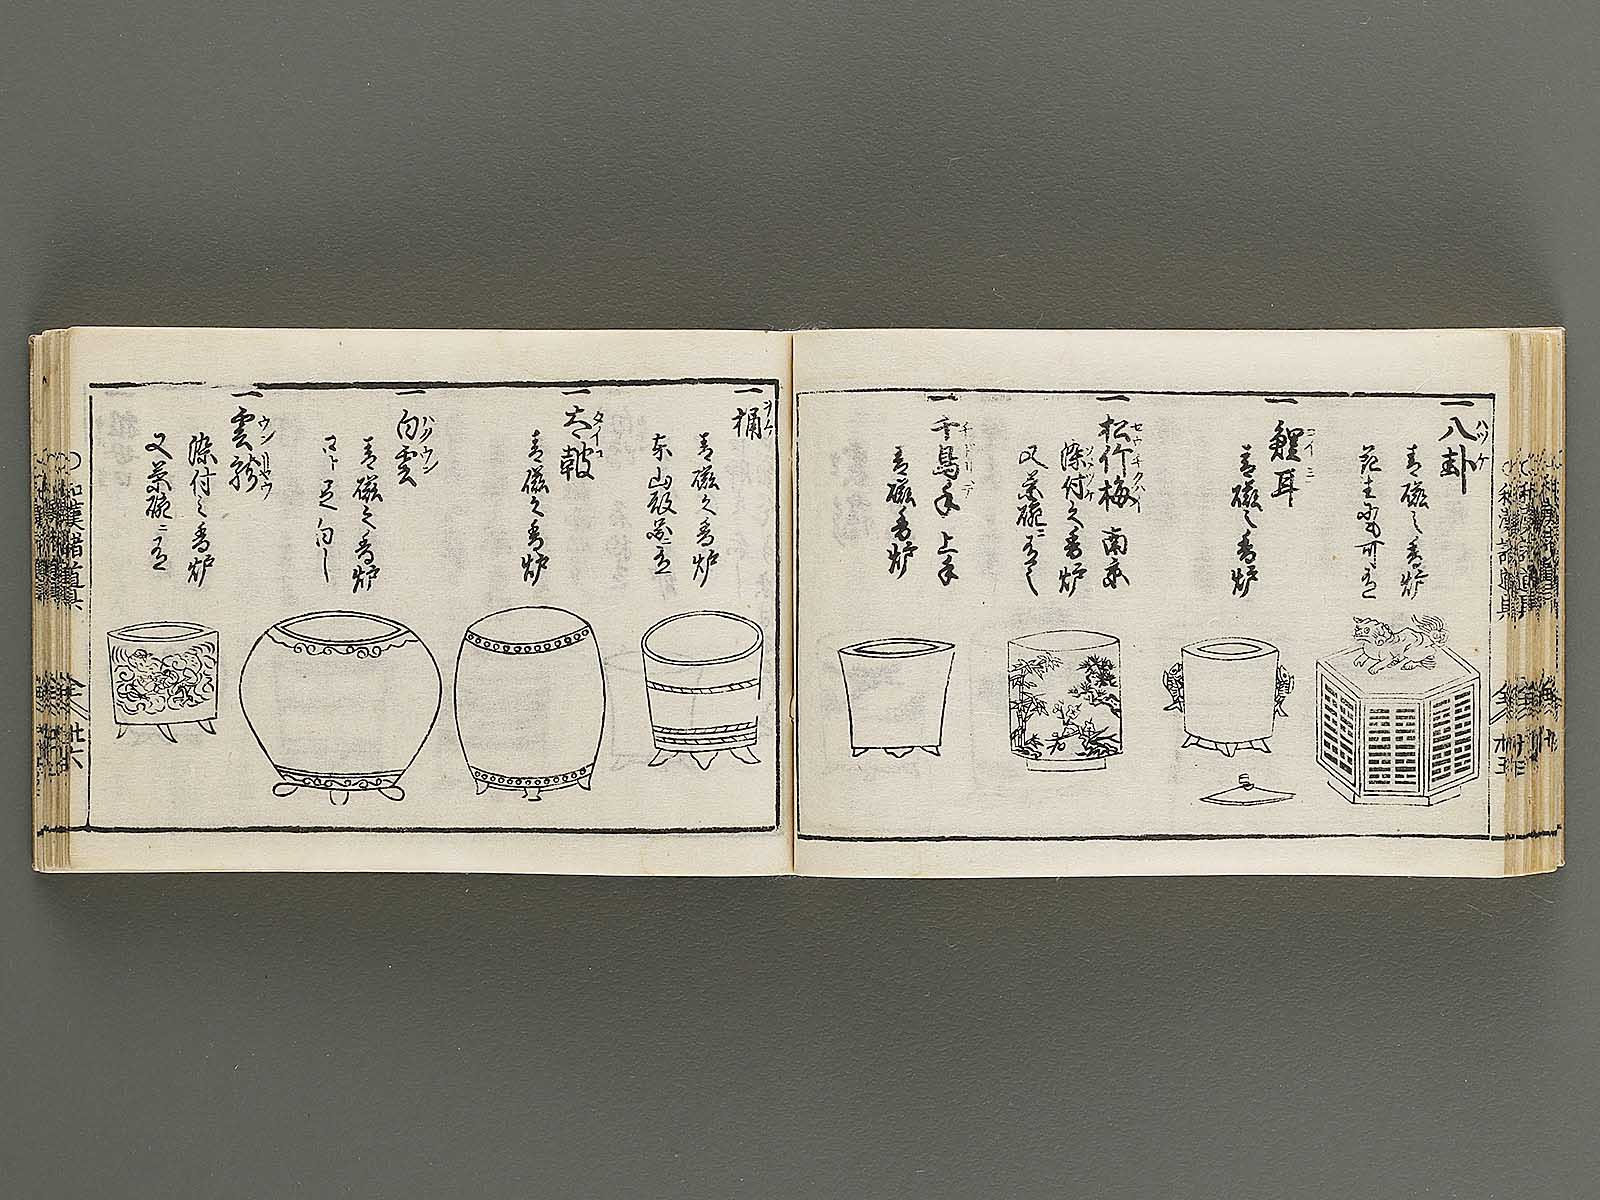 一八卦
ハツケ
青磁之香炉
一鯉耳
コイミミ
青磁之香炉
一松竹梅 南京
セウチクバイ
染付之香炉
ソメツケ
又茶碗ニ有之
一千鳥手 上手
チドリデ
青磁香炉
一桶
ヲケ
青磁之香炉
一太鼓
タイコ
青磁之香炉
一白雲
ハクウン
青磁之香炉
一雲龍
ウンリヤウ
染付之香炉
又茶碗ニ有
和漢諸道具
全
廿六